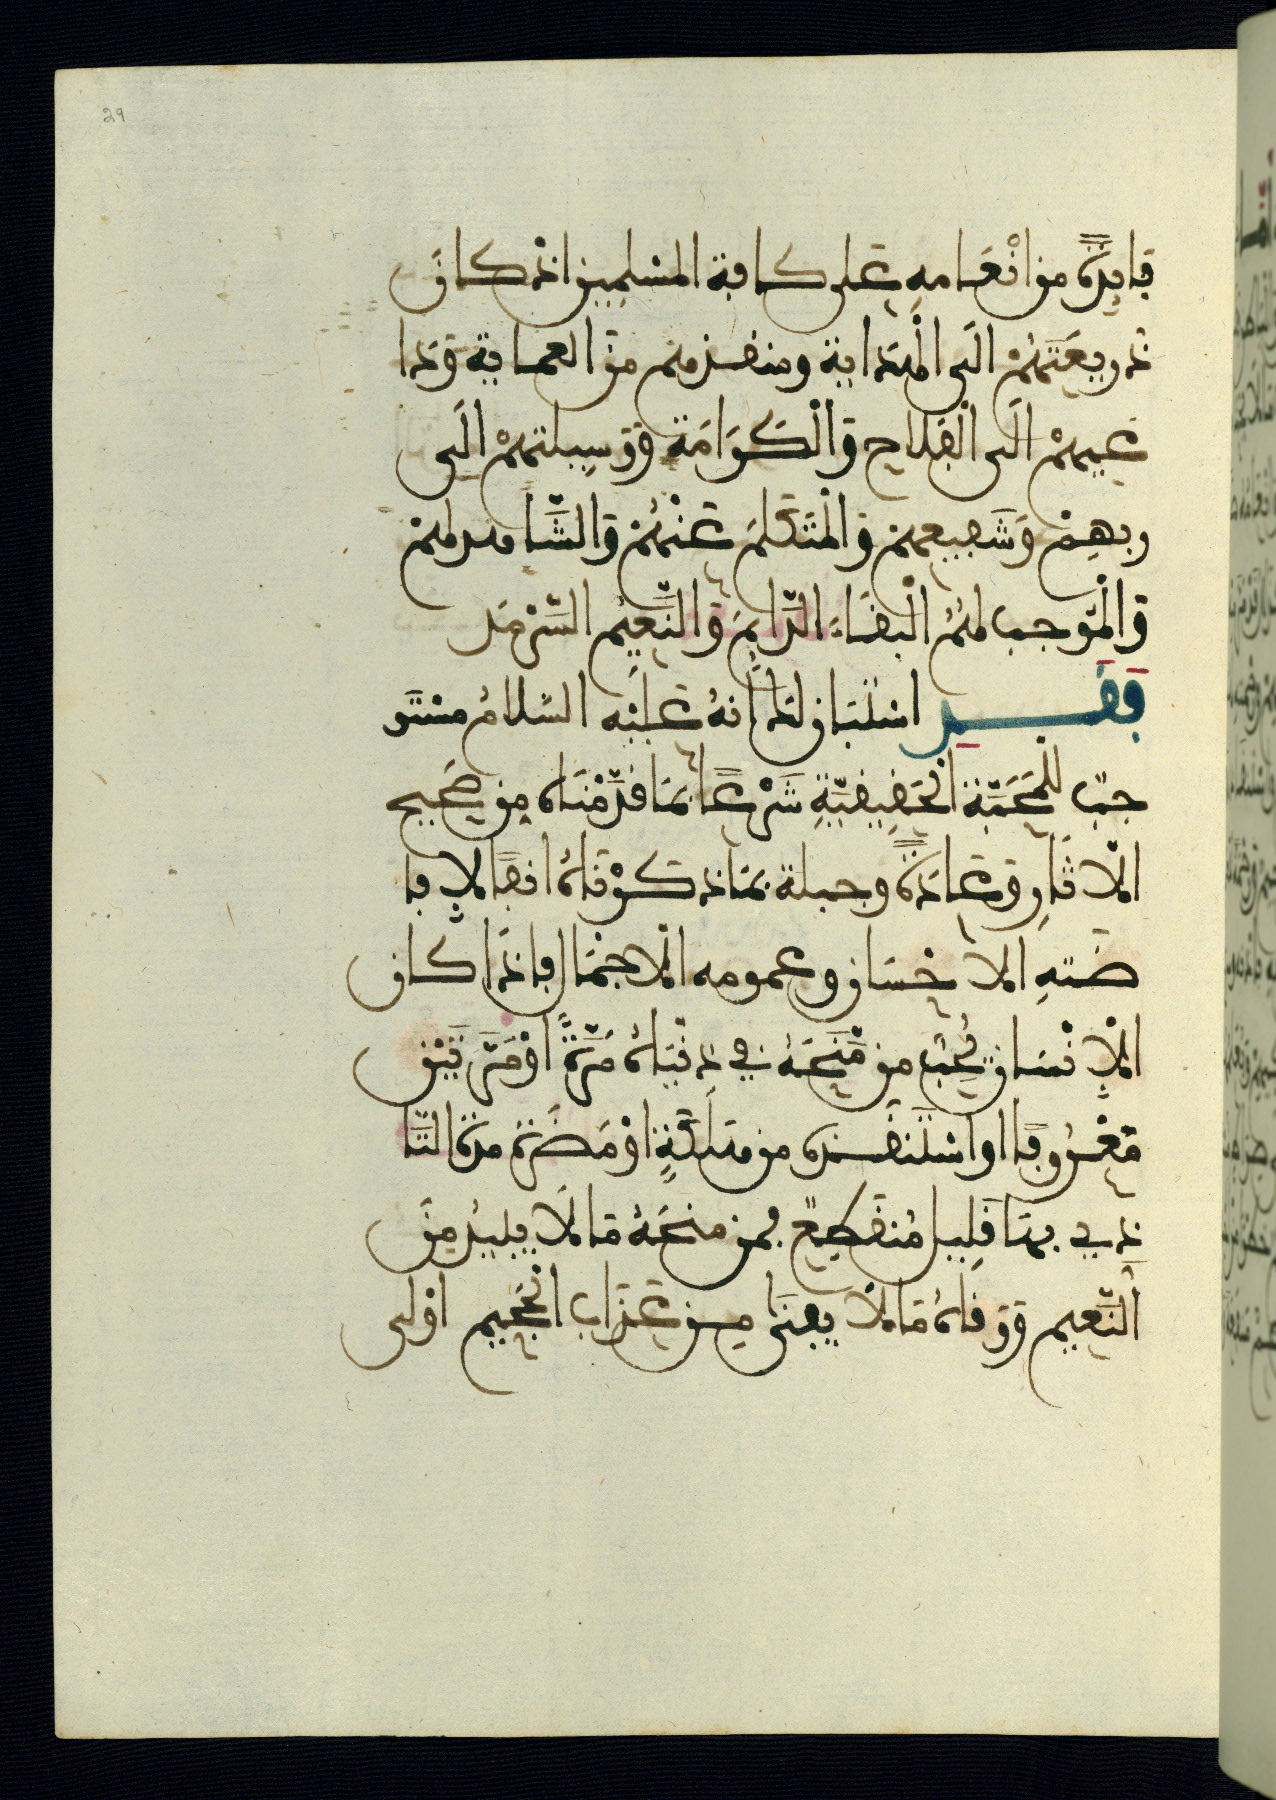 29
فايدَةً من انْعَامهِ عَلى كافة المسْلِمِين اذْ كانَ
ذريعَتَهُمْ الَى الْهِدَاية ومنقذهم منَ العماية وَدَا
عِيهمْ الَى الْفَلَاح وَالْكَرَامَة وَوسِيلتهمْ الَى
ربهِمْ وَشَفِيعهمْ وَالْمتَكَلِّمَ عَنْهُمْ وَالشَّاهد لهمْ
وَالْمُوجب لهُمُ الْبقَاءَ الدَّايمَ وَالنَّعِيمَ السَّرْمَد
فَقَدِ اسْتَبَان لكَ انهُ عَلَيْهِ السَّلامُ مسْتَو
جبٌ للْمَحَبَّة الْحَقِيقيَّةِ شَرْعًا بمَا قدَّمْنَاه مِن صَحِيح
الْآثَارِ وَعَادَةً وجبلة بمَا ذكَرْنَاهُ آنفًا لإفا
ضَتهِ الاحْسَان وعمومه الاجْمَال فاذَا كان
الْإنْسَان يُحِبُّ من مَنَحَهُ في دنْيَاهُ مَرَّةً اوْ مَرَّتَيْن
مَعْرُوفًا او اسْتَنقَذهُ من هَلَكَةٍ اوْ مَضَرَّة مدة التَّا
ذي بهَا قَلِيل مُنقَطِعٌ فمن منحَهُ مَا لَا يبيدُ مِنَ
النَّعيم وَوقاهُ مَا لا يفنَى مِن عَذَاب الْجَحِيم اوْلى